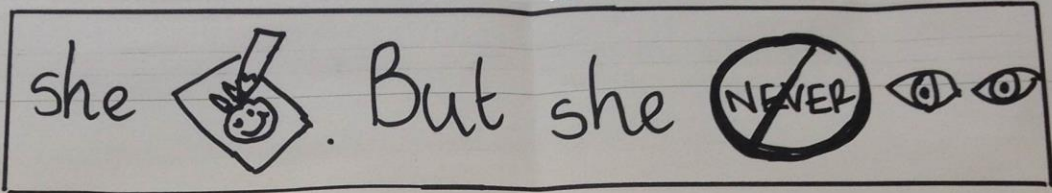 she . But she NEVER